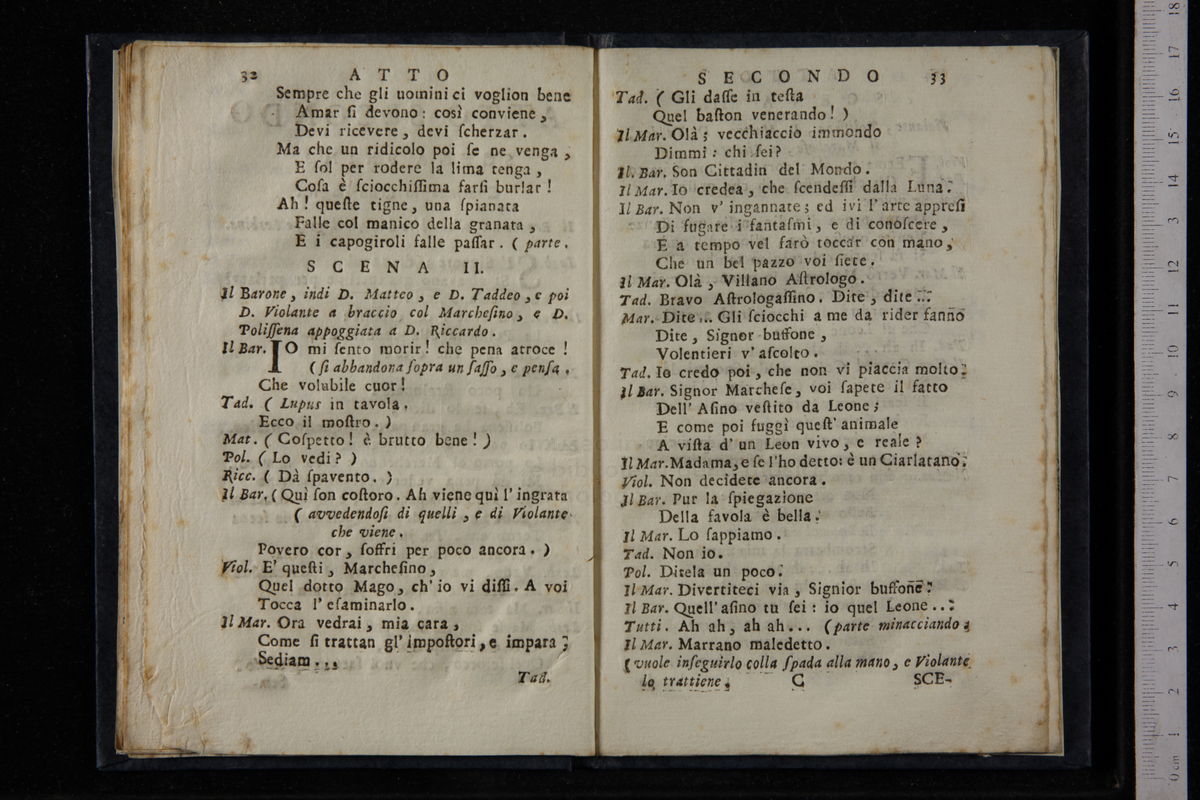 32 ATTO
Sempre che gli uomini ci voglion bene
Amar ſi devono: così conviene,
Devi ricevere, devi ſcherzar.
Ma che un ridicolo poi ſe ne venga,
E ſol per rodere la lima tenga,
Coſa è ſciocchiſſima farſi burlar!
Ah! queſte tigne, una ſpianata
Falle col manico della granata,
E i capogiroli falle paſſar. (parte.
SCENA II.
Il Barone, indi D. Matteo, e D. Taddeo, e poi
D. Violante a braccio col Marcheſino, e D.
Poliſſena appoggiata a D. Riccardo.
Il Bar. IO mi ſento morir! che pena atroce!
(ſi abbandona ſopra un ſaſſo, e penſa.
Che volubile cuor!
Tad. (Lupus in tavola.
Ecco il moſtro.)
Mat. (Coſpetto! è brutto bene!)
Pol. (Lo vedi?)
Ricc. (Dà ſpavento.)
Il Bar. (Quì ſon coſtoro. Ah viene quì l'ingrata
(avvedendoſi di quelli, e di Violante
che viene.
Povero cor, ſoffri per poco ancora.)
Viol. E' queſti, Marcheſino,
Quel dotto Mago, ch'io vi diſſi. A voi
Tocca l'eſaminarlo.
Il Mar. Ora vedrai, mia cara,
Come ſi trattan gl'impoſtori, e impara;
Sediam...
Tad.
SECONDO 33
Tad. (Gli daſſe in teſta
Quel baſton venerando!)
Il Mar. Olà; vecchiaccio immondo
Dimmi: chi ſei?
Il Bar. Son Cittadin del Mondo.
Il Mar. Io credea, che ſcendeſſi dalla Luna.
Il Bar. Non v'ingannate; ed ivi l'arte appreſi
Di fugare i fantaſmi, e di conoſcere,
E a tempo vel farò toccar con mano,
Che un bel pazzo voi ſiete.
Il Mar. Olà, Villano Aſtrologo.
Tad. Bravo Aſtrologaſſino. Dite, dite...
Mar. Dite... Gli ſciocchi a me da rider fanno
Dite, Signor buffone,
Volentieri v'aſcolto.
Tad. Io credo poi, che non vi piaccia molto.
Il Bar. Signor Marcheſe, voi ſapete il fatto
Dell'Aſino veſtito da Leone;
E come poi fuggì queſt'animale
A viſta d'un Leon vivo, e reale?
Il Mar. Madama, e ſe l'ho detto: è un Ciarlatano.
Viol. Non decidete ancora.
Il Bar. Pur la ſpiegazione
Della favola è bella.
Il Mar. Lo ſappiamo.
Tad. Non io.
Pol. Ditela un poco.
Il Mar. Divertiteci via, Signior buffone.
Il Bar. Quell'aſino tu ſei: io quel Leone...
Tutti. Ah ah, ah ah... (parte minacciando.
Il Mar. Marrano maledetto.
(vuole inſeguirlo colla ſpada alla mano, e Violante
lo trattiene.
C SCE-
0 cm 1 2 3 4 5 6 7 8 9 10 11 12 13 14 15 16 17 18